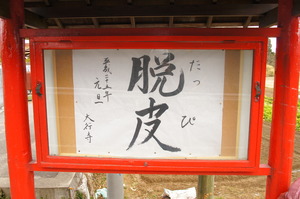 脱皮
だっぴ
平成二十五年
元旦
大行寺